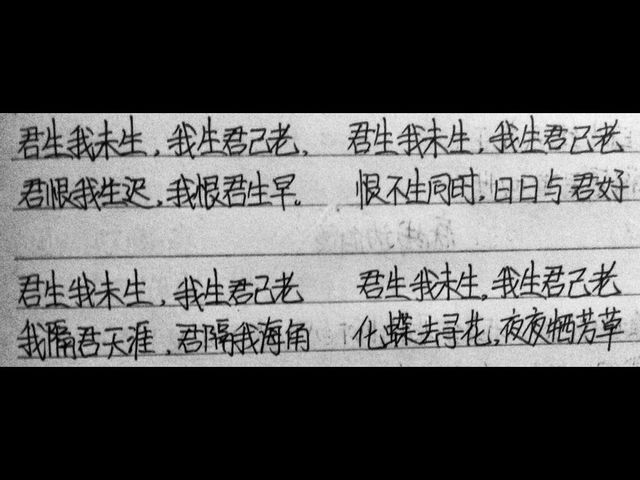 君生我未生，我生君已老，
君恨我生迟，我恨君生早。
君生我未生，我生君已老
恨不生同时，日日与君好
君生我未生，我生君已老
我隔君天涯，君隔我海角
君生我未生，我生君已老
化蝶去寻花，夜夜栖芳草